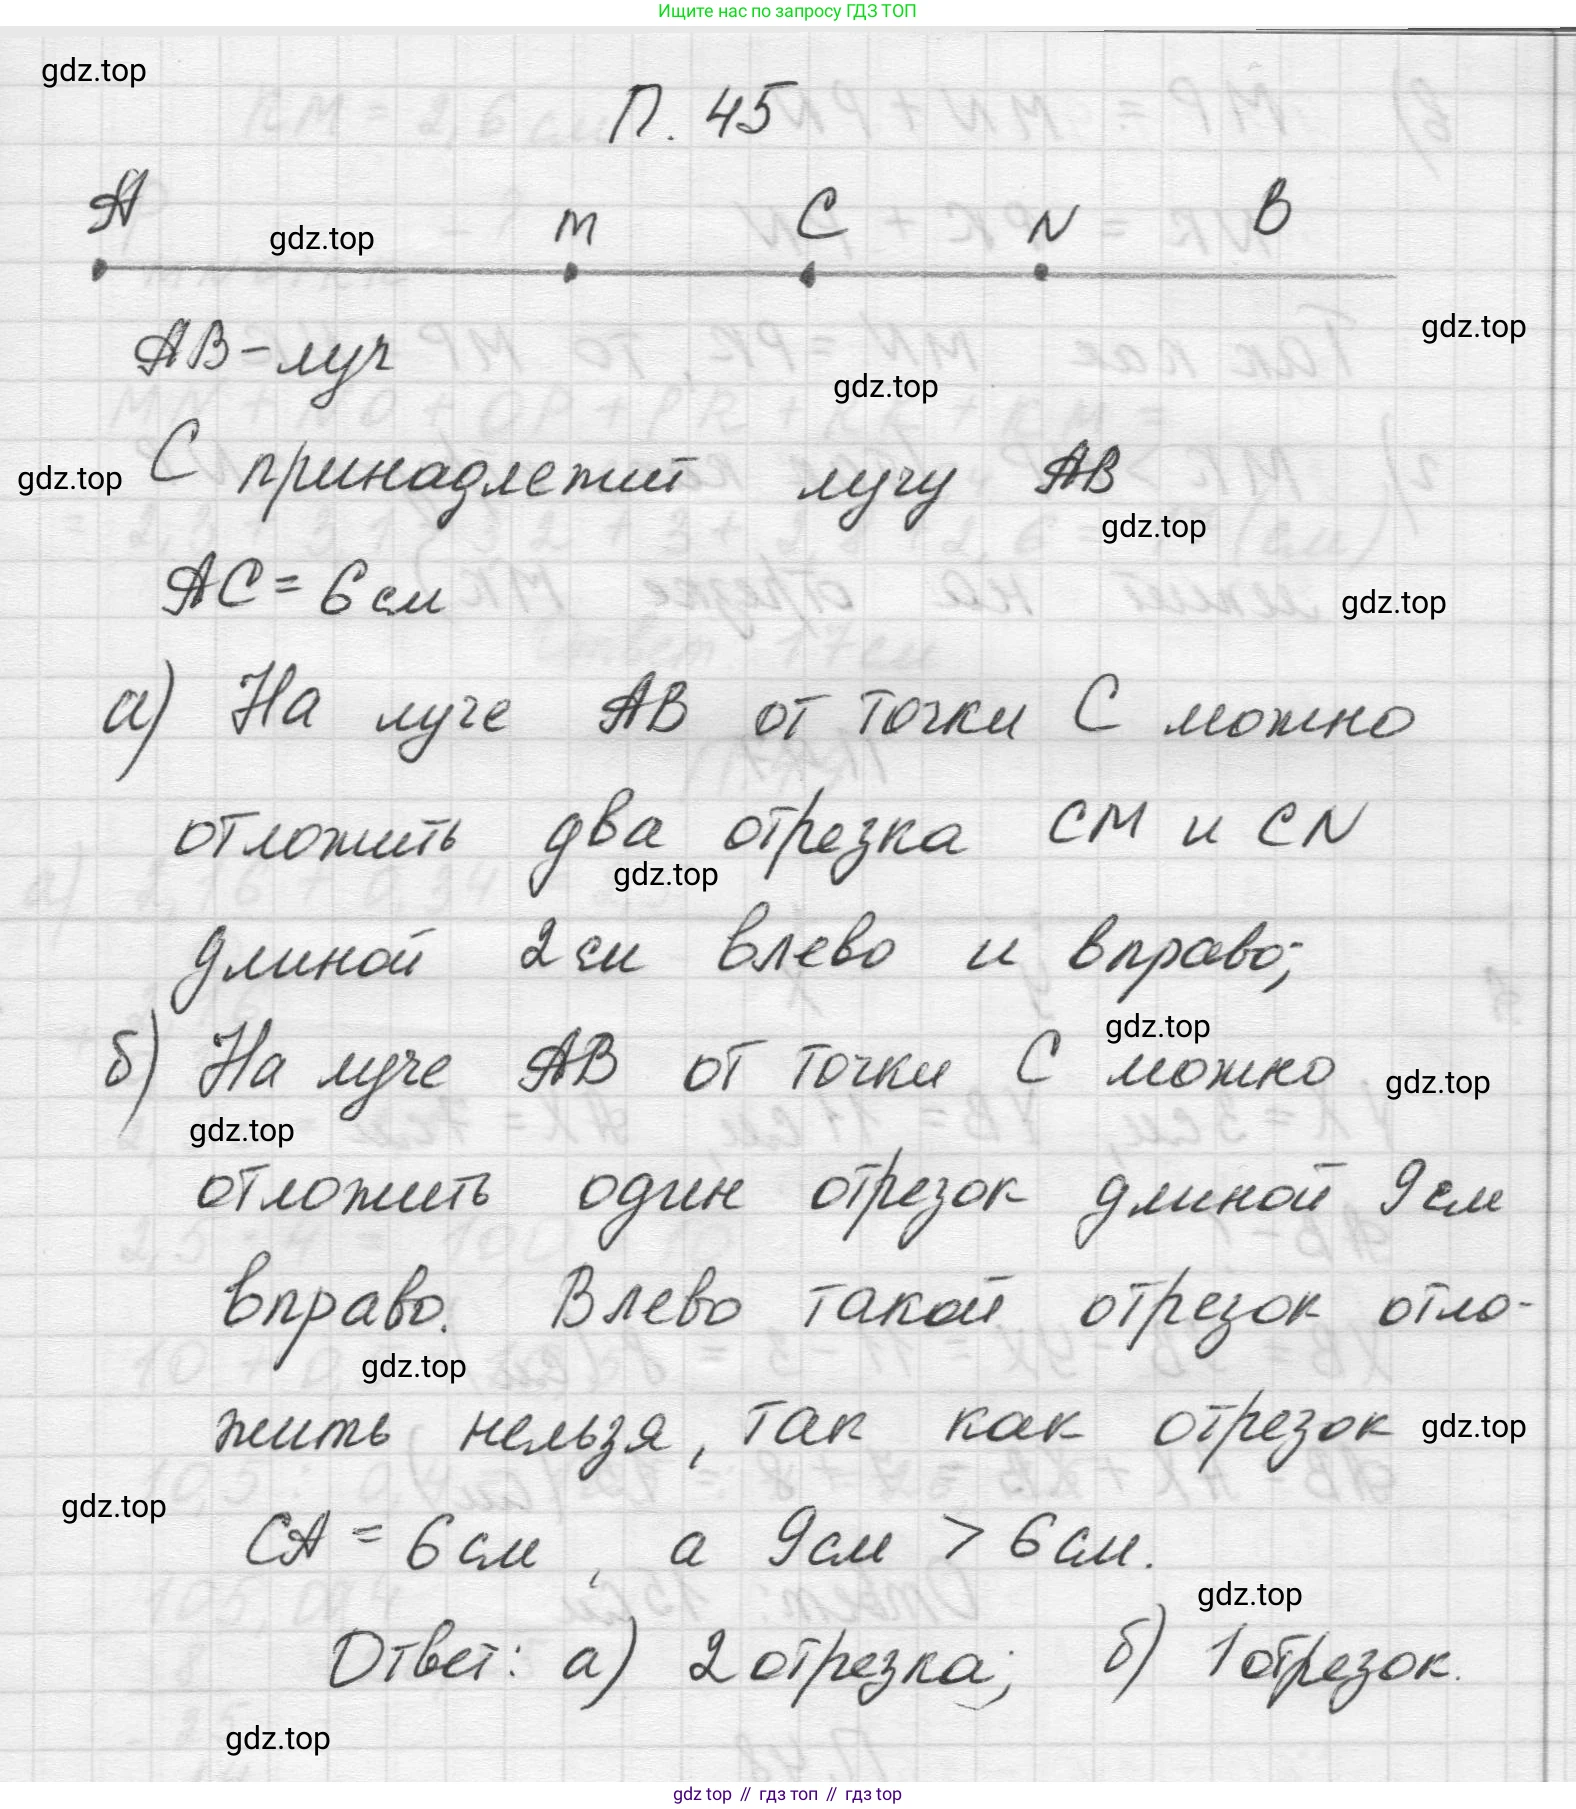 Ищите нас по запросу ГДЗ ТОП
gdz.top
П. 45
A M C N B
gdz.top
AB-луч
gdz.top
gdz.top
С принадлежит лучу AB
gdz.top
gdz.top
AC = 6 см
gdz.top
а) На луче AB от точки C можно
отложить два отрезка CM и CN
gdz.top
длиной 2 см влево и вправо;
gdz.top
б) На луче AB от точки C можно
gdz.top
gdz.top
отложить один отрезок длиной 9 см
вправо. Влево такой отрезок отло-
gdz.top
жить нельзя, так как отрезок
gdz.top
gdz.top
CA = 6 см, а 9 см > 6 см.
gdz.top
Ответ: а) 2 отрезка; б) 1 отрезок.
gdz.top
gdz top // гдз топ // гдз top